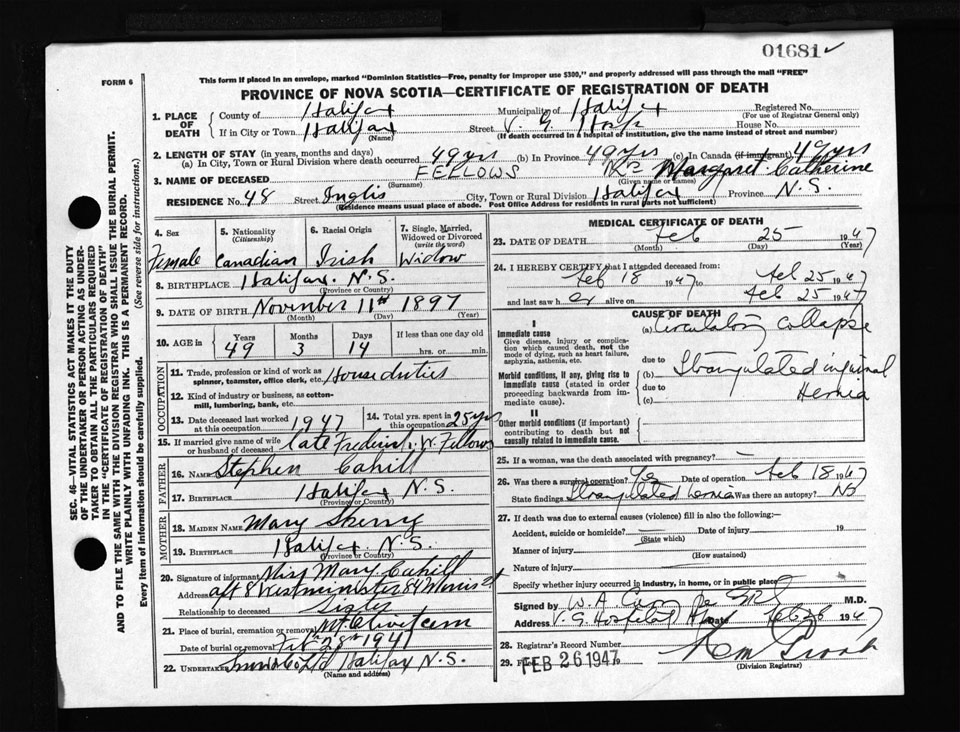 01681 ✓
FORM 6
This form if placed in an envelope, marked "Dominion Statistics—Free, penalty for improper use $300," and properly addressed will pass through the mail "FREE"
PROVINCE OF NOVA SCOTIA—CERTIFICATE OF REGISTRATION OF DEATH
SEC. 46—VITAL STATISTICS ACT MAKES IT THE DUTY
OF THE UNDERTAKER OR PERSON ACTING AS UNDER-
TAKER TO OBTAIN ALL THE PARTICULARS REQUIRED
IN THE "CERTIFICATE OF REGISTRATION OF DEATH"
AND TO FILE THE SAME WITH THE DIVISION REGISTRAR WHO SHALL ISSUE THE BURIAL PERMIT.
WRITE PLAINLY WITH UNFADING INK. THIS IS A PERMANENT RECORD.
Every item of information should be carefully supplied. (See reverse side for instructions.)
1. PLACE OF DEATH County of Halifax Municipality of Halifax Registered No.
(For use of Registrar General only)
If in City or Town Halifax Street V. G. Hosp House No.
(Name) (If death occurred in a hospital of institution, give the name instead of street and number)
2. LENGTH OF STAY (in years, months and days)
(a) In City, Town or Rural Division where death occurred 49 yrs (b) In Province 49 yrs (c) In Canada (if immigrant) 49 yrs
3. NAME OF DECEASED FELLOWS Margaret Catherine
(Surname) (Given name or names)
RESIDENCE No. 48 Street Inglis City, Town or Rural Division Halifax Province N.S.
(Residence means usual place of abode. Post Office Address for residents in rural parts not sufficient)
4. Sex 5. Nationality (Citizenship) 6. Racial Origin 7. Single, Married, Widowed or Divorced (write the word)
Female Canadian Irish Widow
8. BIRTHPLACE Halifax. N.S.
(Province or Country)
9. DATE OF BIRTH November 11th 1897
(Month) (Day) (Year)
10. AGE in Years Months Days If less than one day old
49 3 14 hrs. or min.
OCCUPATION
11. Trade, profession or kind of work as spinner, teamster, office clerk, etc. House duties
12. Kind of industry or business, as cotton-mill, lumbering, bank, etc.
13. Date deceased last worked at this occupation 1947 14. Total yrs. spent in this occupation 25 yrs
15. If married give name of wife or husband of deceased late Frederick W. Fellows
FATHER
16. NAME Stephen Cahill
17. BIRTHPLACE Halifax N.S.
(Province or Country)
MOTHER
18. MAIDEN NAME Mary
19. BIRTHPLACE Halifax. N.S.
(Province or Country)
20. Signature of informant Miss Mary Cahill
Address apt 8 Westminister 84 Morris st
Relationship to deceased Sister
21. Place of burial, cremation or removal Mt Olivet cem
Date of burial or removal Feb 28th 1947
22. Undertaker Halifax N.S.
(Name and address)
MEDICAL CERTIFICATE OF DEATH
23. DATE OF DEATH Feb 25 1947
(Month) (Day) (Year)
24. I HEREBY CERTIFY that I attended deceased from
Feb 18 1947 to Feb 25 1947
and last saw her alive on Feb 25 1947
CAUSE OF DEATH
I
Immediate cause (a) Circulatory collapse
Give disease, injury or complication which caused death, not the mode of dying, such as heart failure, asphyxia, asthenia, etc.
due to
Morbid conditions, if any, giving rise to immediate cause (stated in order proceeding backwards from immediate cause). (b) Strangulated inguinal
due to Hernia
(c)
II
Other morbid conditions (if important) contributing to death but not causally related to immediate cause.
25. If a woman, was the death associated with pregnancy?
26. Was there a surgical operation? Yes Date of operation Feb 18 1947
State findings Strangulated hernia Was there an autopsy? No
27. If death was due to external causes (violence) fill in also the following:—
Accident, suicide or homicide? Date of injury 19
(State which)
Manner of injury
(How sustained)
Nature of injury
Specify whether injury occurred in industry, in home, or in public place
Signed by W. A. M.D.
Address V. G. Hospital Date Feb 26 1947
28. Registrar's Record Number
29. FEB 26 1947
(Division Registrar)